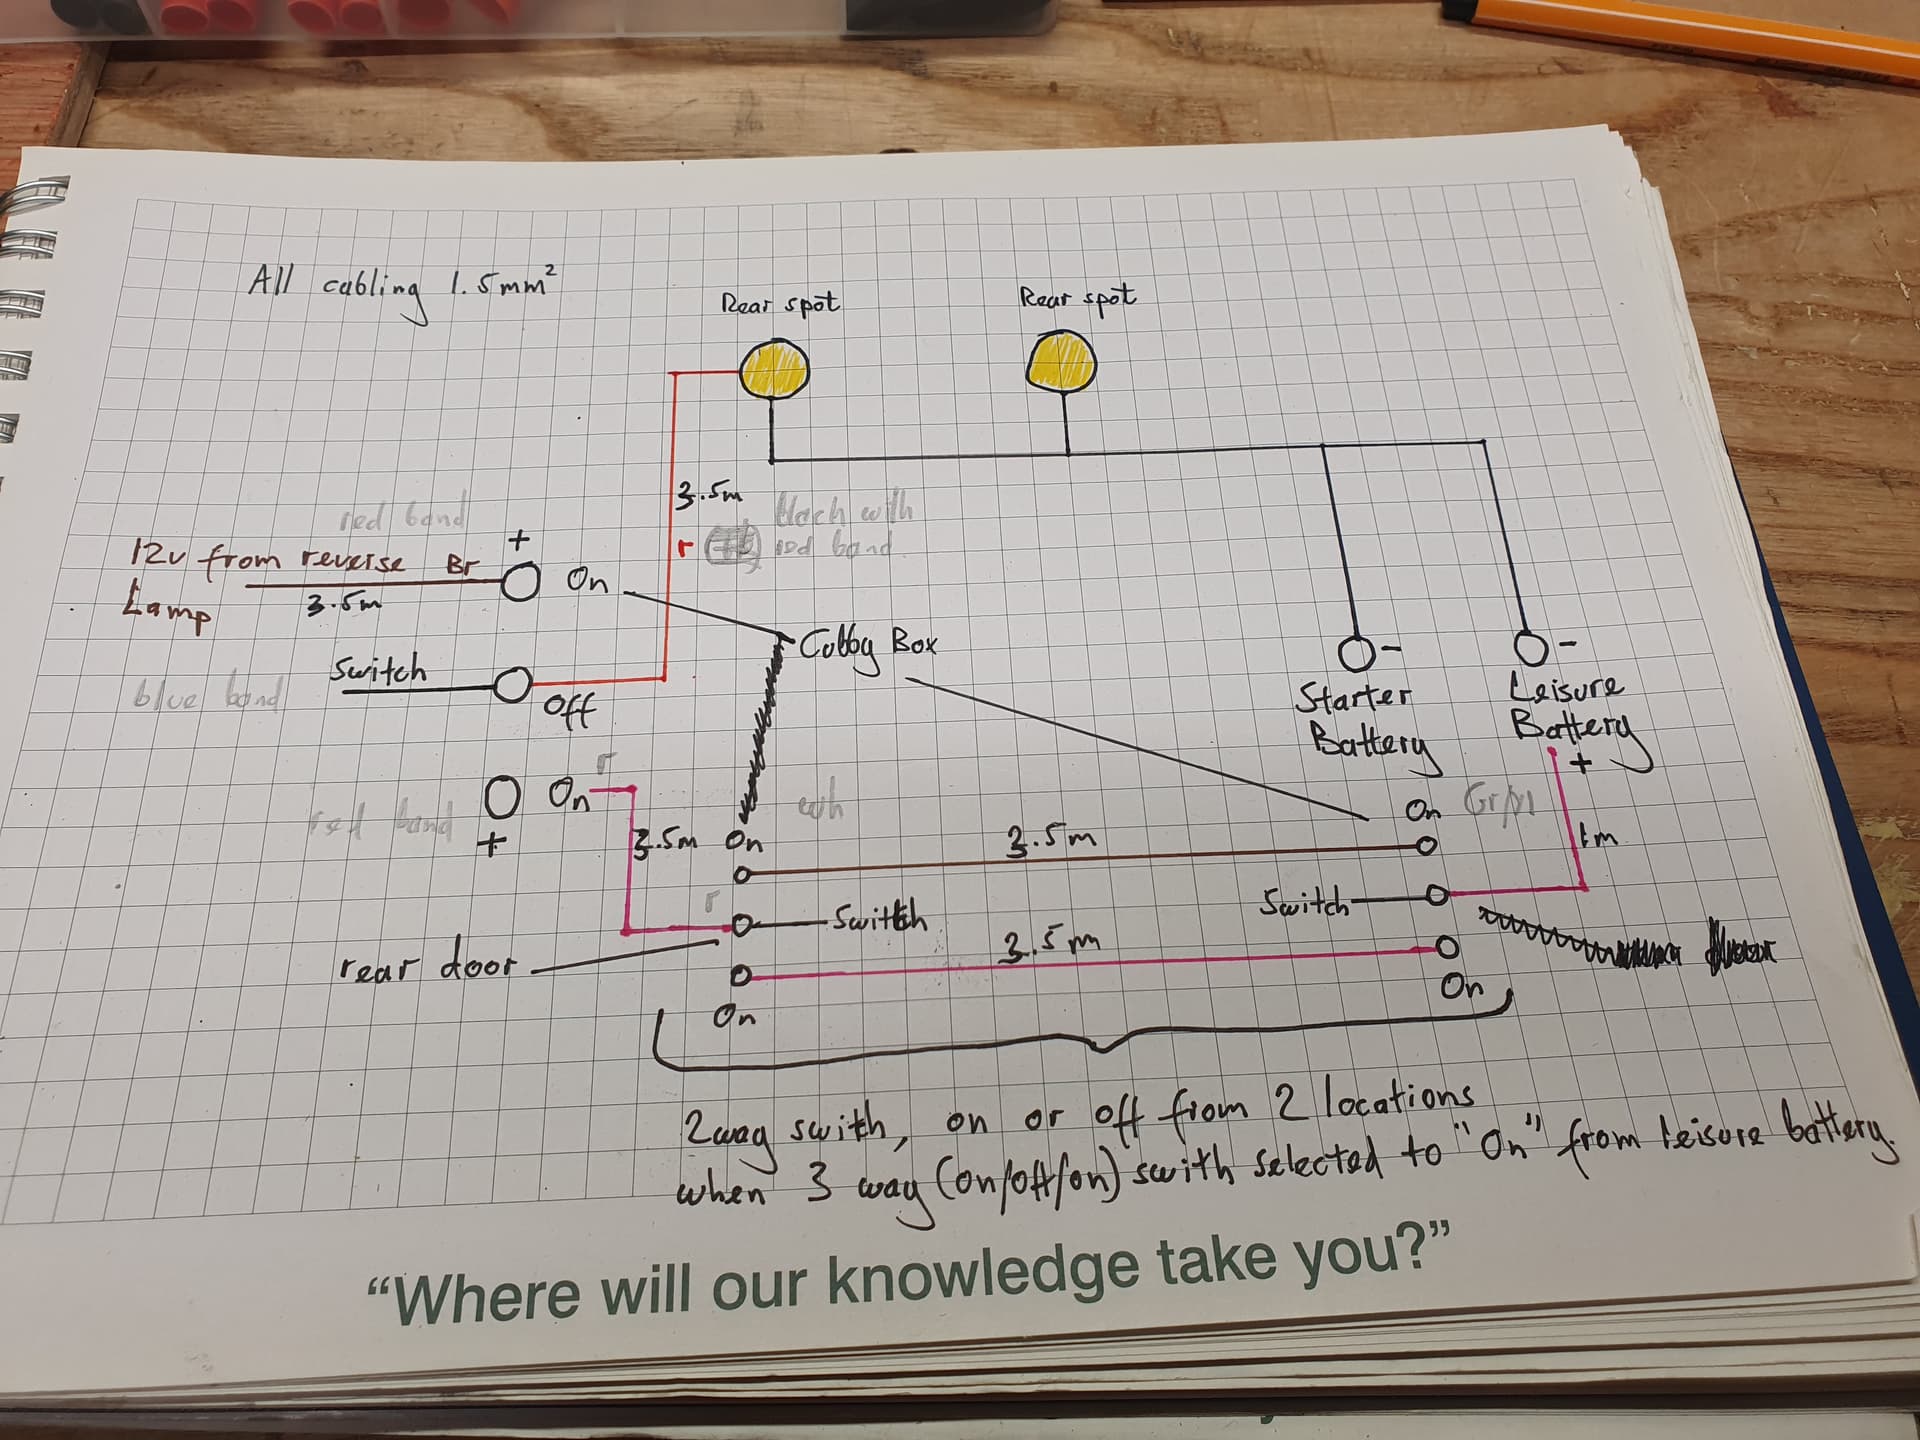 All cabling 1.5mm²
Rear spot
Rear spot
3.5m
black with
red band
r
red band
12v from reverse Br
Lamp
3.5m
+
On
Cubby Box
Switch
blue band
Off
-
-
Starter
Battery
Leisure
Battery
+
r
On
red band
+
3.5m
wh
On
3.5m
On
Gr/yl
1m
r
Switch
Switch
rear door
3.5m
On
On
2way swith, on or off from 2 locations
when 3 way (on/off/on) swith selected to "On" from leisure battery.
“Where will our knowledge take you?”